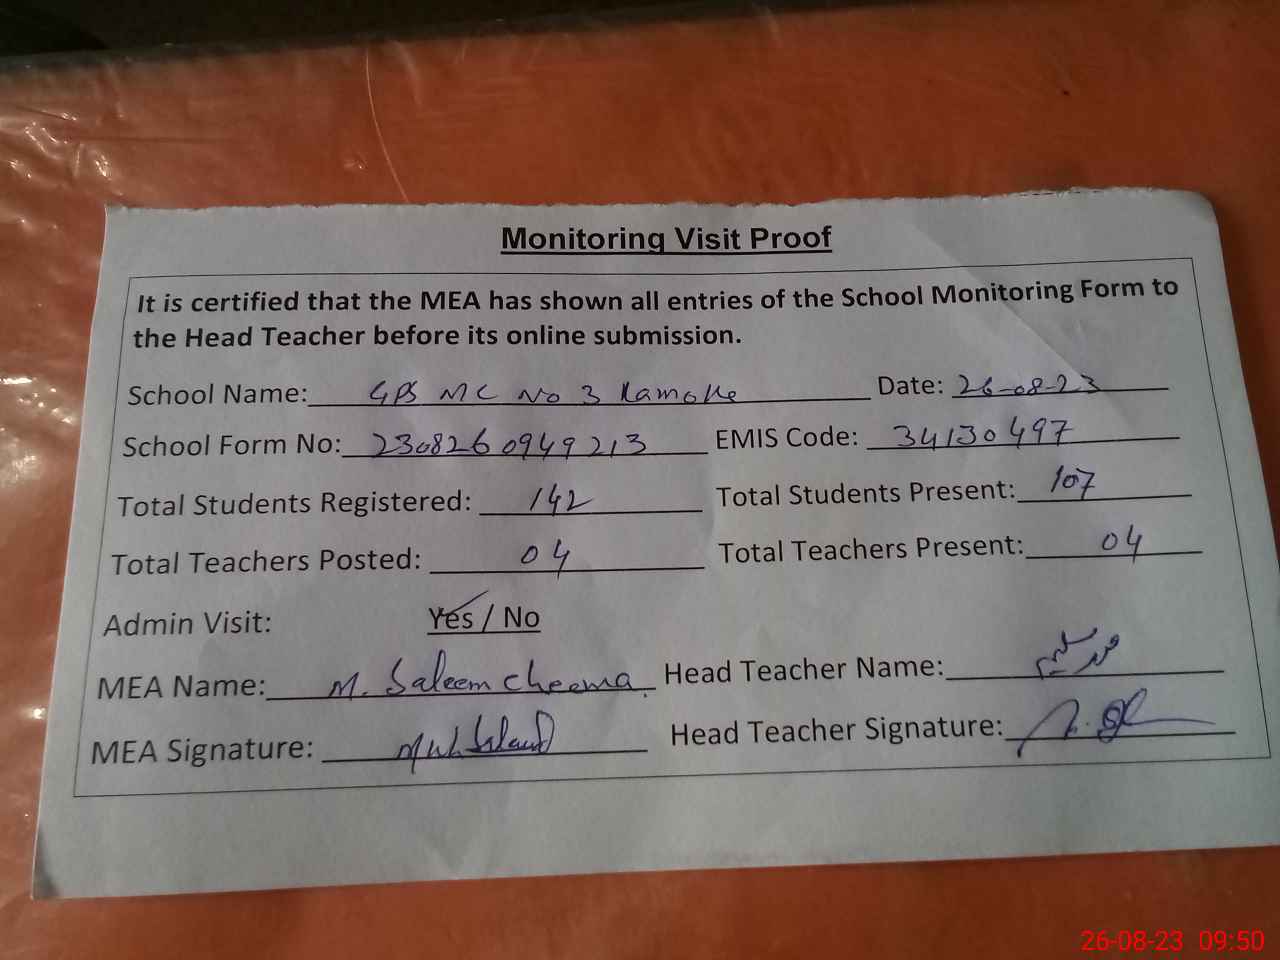 Monitoring Visit Proof
It is certified that the MEA has shown all entries of the School Monitoring Form to
the Head Teacher before its online submission.
School Name: GPS MC No 3 Kamoke Date: 26-08-23
School Form No: 2308260949213 EMIS Code: 34130497
Total Students Registered: 142 Total Students Present: 107
Total Teachers Posted: 04 Total Teachers Present: 04
Admin Visit: Yes / No
MEA Name: M. Saleem Cheema. Head Teacher Name:
MEA Signature: Head Teacher Signature:
26-08-23 09:50